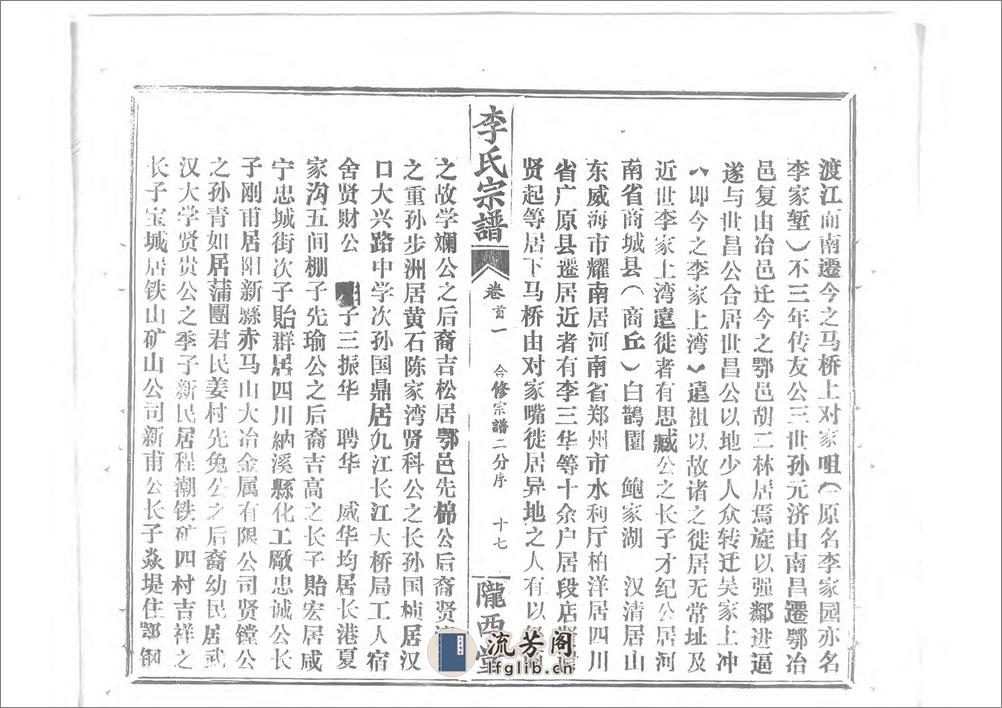 渡江而南遷今之马桥上对家咀（原名李家园亦名
李家堑）不三年传友公三世孙元济由南昌遷鄂冶
邑复由冶邑迁今之鄂邑胡二林居焉旋以强鄰进逼
遂与世昌公合居世昌公以地少人众转迁吴家上冲
（即今之李家上湾）遠祖以故诸之徙居无常址及
近世李家上湾遠徙者有思臧公之长子才纪公居河
南省商城县（商丘）白鵲園 鲍家湖 汉清居山
东威海市耀南居河南省郑州市水利厅柏洋居四川
省广原县遷居近者有李三华等十余户居段店
贤起等居下马桥由对家嘴徙居异地之人有以
李氏宗譜 卷首一 合修宗譜二分序 十七 隴西堂
之故学斓公之后裔吉松居鄂邑先棉公后裔贤
之重孙步洲居黄石陈家湾贤科公之长孙国楨居汉
口大兴路中学次孙国鼎居九江长江大桥局工人宿
舍贤财公 子三振华 聘华 威华均居长港夏
家沟五间棚子先瑜公之后裔吉高之长子贻宏居咸
宁忠城街次子贻群居四川納溪縣化工廠忠诚公长
子刚甫居阳新縣赤马山大冶金属有限公司贤镗公
之孙青如居蒲團君民姜村先兔公之后裔幼民居武
汉大学贤贵公之季子新民居程潮铁矿四村吉祥之
长子宝城居铁山矿山公司新甫公长子焱堤住鄂钢
流芳阁
lfglib.cn